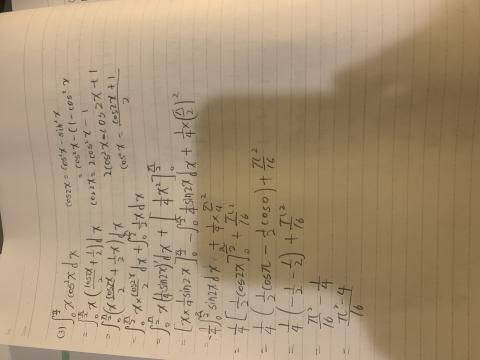 (3) ∫₀^{π/2} x cos²x dx
= ∫₀^{π/2} x (cos2x/2 + 1/2) dx
= ∫₀^{π/2} (x cos2x/2 + 1/2 x) dx
= ∫₀^{π/2} x × cos2x/2 dx + ∫₀^{π/2} 1/2 x dx
= ∫₀^{π/2} x (1/4 sin2x)' dx + [1/4 x²]₀^{π/2}
= [x × 1/4 sin2x]₀^{π/2} - ∫₀^{π/2} 1/4 sin2x dx + 1/4 × (π/2)²
= -1/4 ∫₀^{π/2} sin2x dx + 1/4 × π²/4
= 1/4 [1/2 cos2x]₀^{π/2} + π²/16
= 1/4 (1/2 cosπ - 1/2 cos0) + π²/16
= 1/4 (-1/2 - 1/2) + π²/16
= π²/16 - 1/4
= π²-4/16
cos2x = cos²x - sin²x
= cos²x - (1 - cos²x)
cos2x = 2cos²x - 1
2cos²x = cos2x + 1
cos²x = cos2x + 1/2